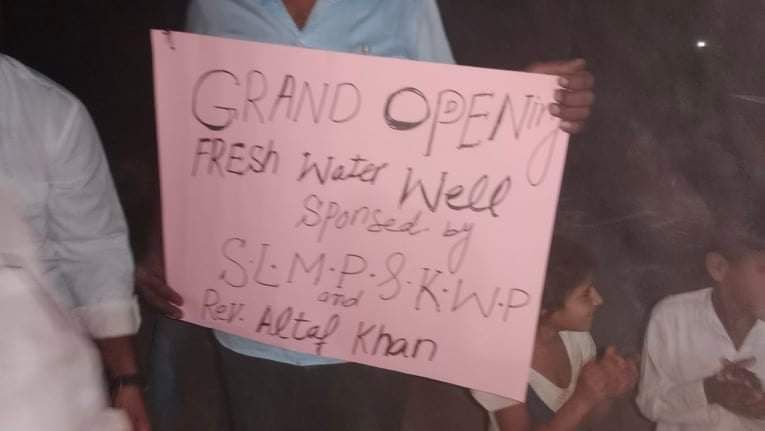 GRAND OPENing
FRESH Water Well
Sponsed by
S.L.M.P.S.K.W.P
and
Rev. Altaf Khan